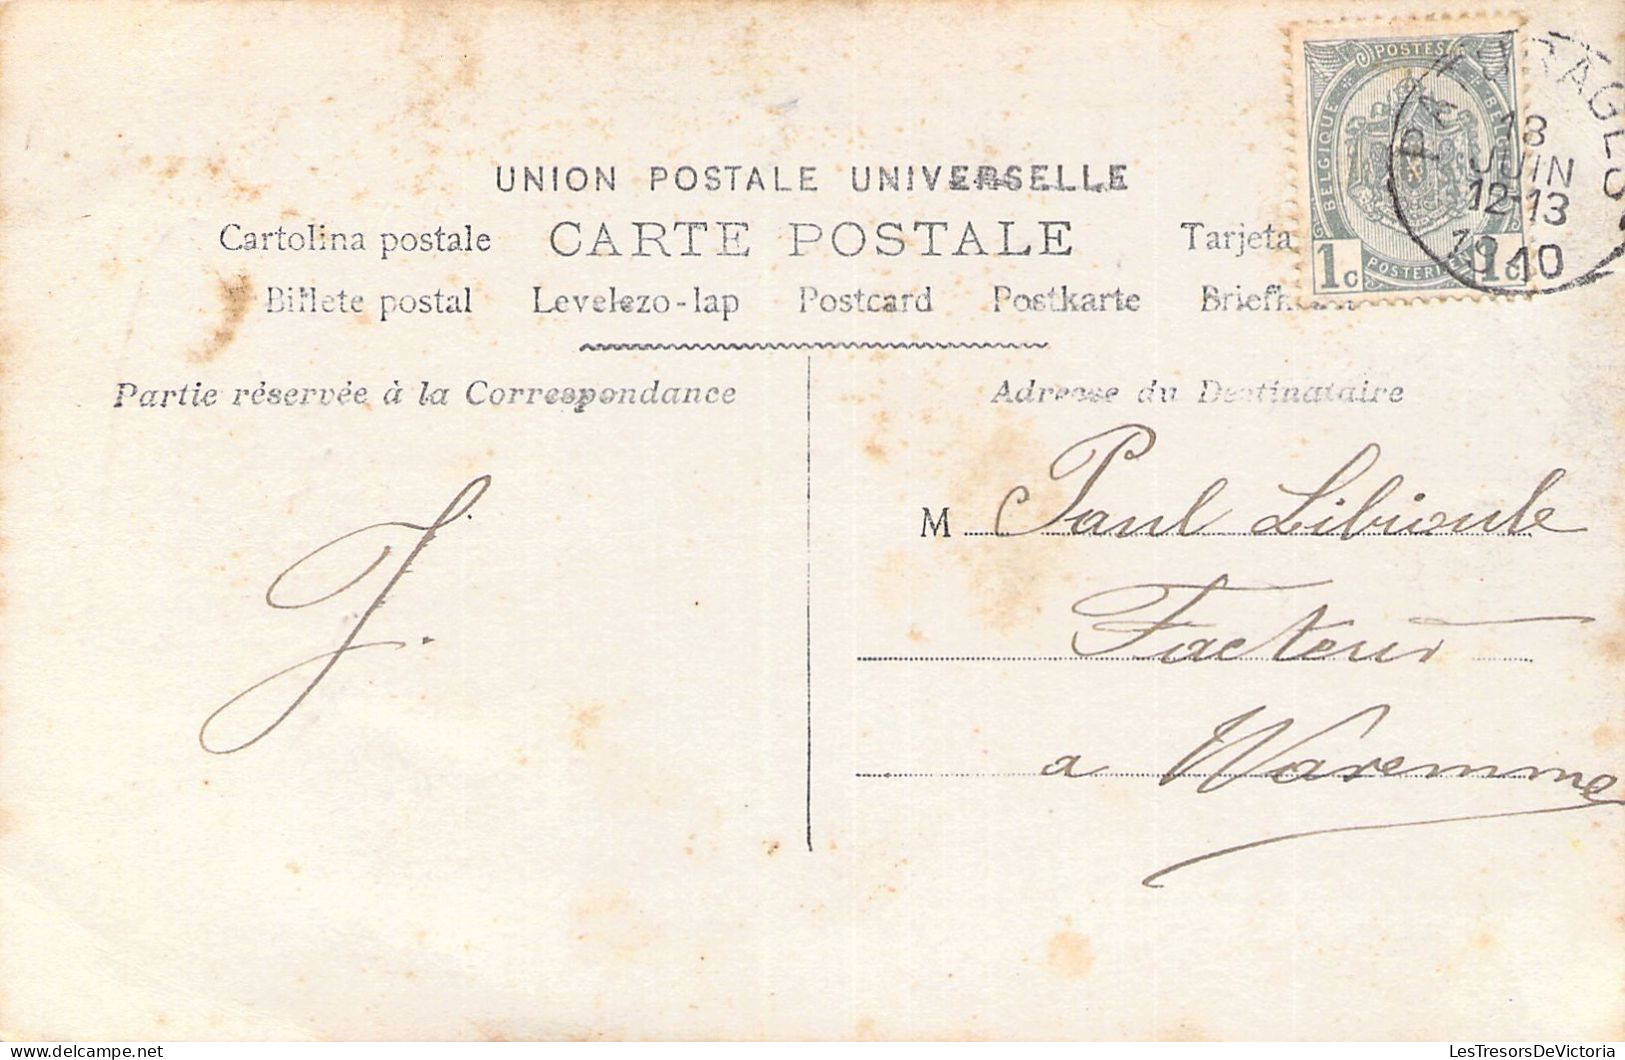 UNION POSTALE UNIVERSELLE
Cartolina postale CARTE POSTALE Tarjeta
Billete postal Levelezo-lap Postcard Postkarte
Partie réservée à la Correspondance
Adresse du Destinataire
POSTES
BELGIQUE
1c POSTERIJEN 1c
PATURAGES
18
JUIN
12-13
1910
J.
M Paul Libioule
Facteur
a Waremme
LesTresorsDeVictoria